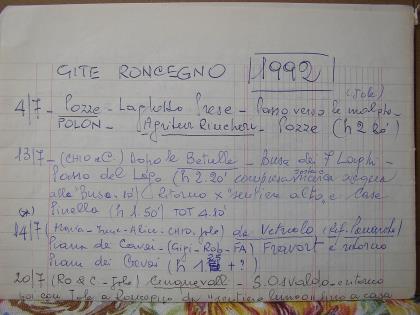 GITE RONCEGNO 1992
(Iole)
4/7 - Pozze - Laghetto Prese - Passo verso le malghe -
POLON - Agritur Rincheri - Pozze (h 2.20')
13/7 - (CHIO e C.) Dopo le Betulle - Busa dei 7 Laghi -
Passo del Lago (h 2.20' compresa sosta
alla "Busa" 10') Ritorno x "sentiero alto, e Case
(h 1.50') TOT 4.10'
14/7 - CHIO, Iole) da Vetriolo (Rif. Panarotta)
Piana dei Cavai - (Gigi - Rob - FA) Fravort e ritorno
Piana dei Cavai (h + ?)
20/7 (RO & C - Iole) Cinquevalli - S. Osvaldo - ritorno
poi con Iole a Roncegno da "sentiero lungo" fino a casa